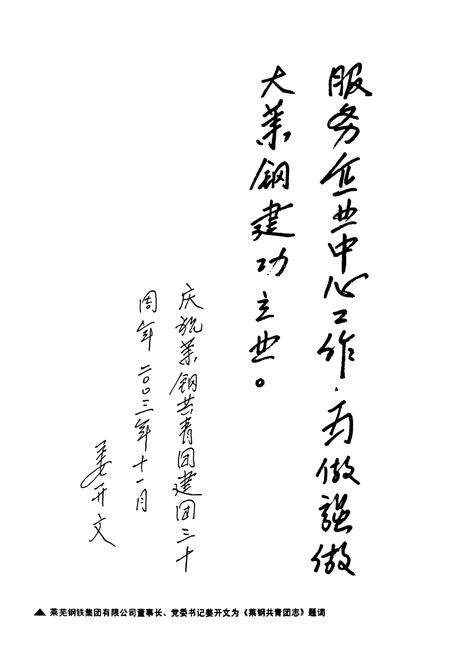 服务企业中心工作，为做强做
大莱钢建功立业。
庆祝莱钢共青团建团三十
周年 二〇〇三年十一月
姜开文
▲ 莱芜钢铁集团有限公司董事长、党委书记姜开文为《莱钢共青团志》题词